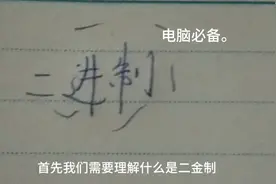 电脑必备。
二进制
首先我们需要理解什么是二金制